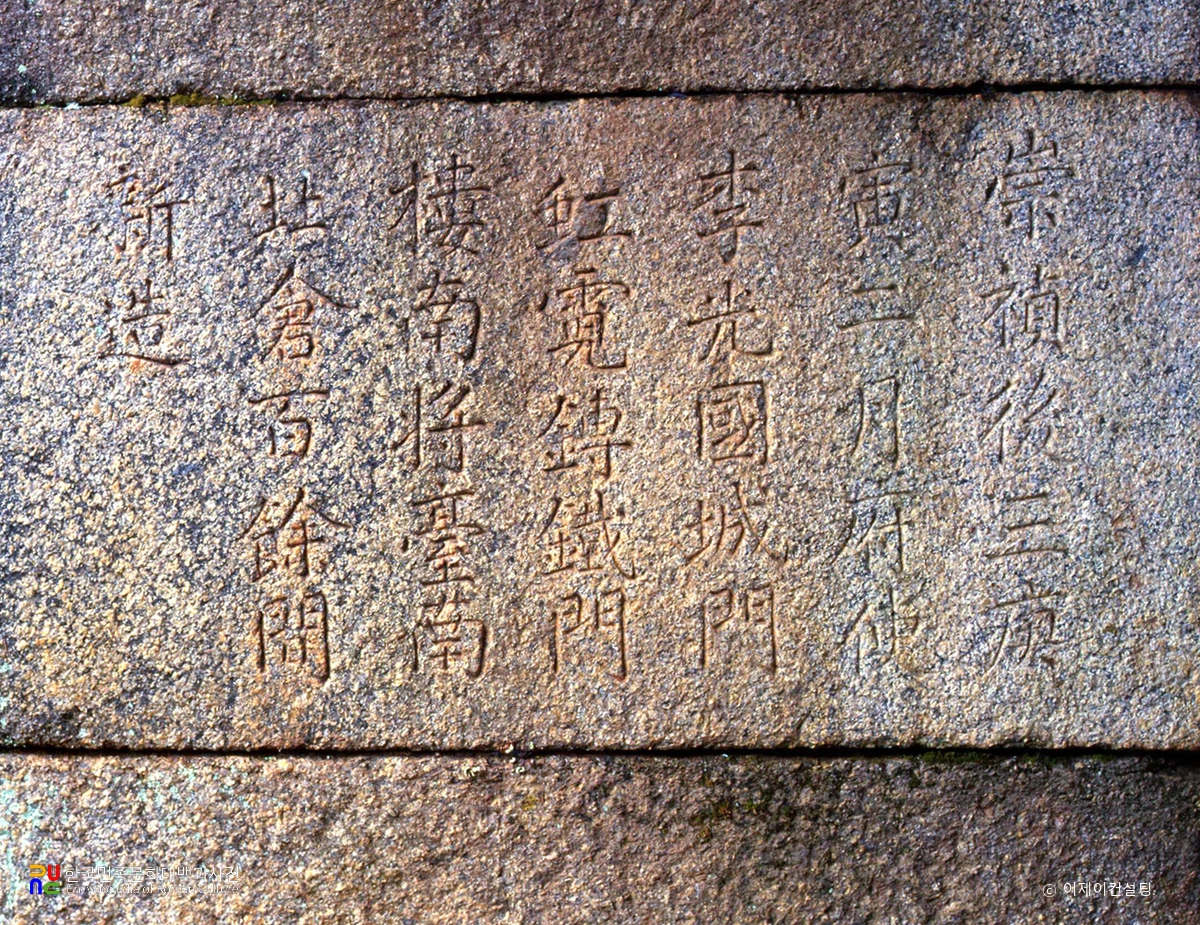 崇禎後三庚
寅二月府使
李光國城門
虹霓鑄鐵門
樓南將臺南
北倉百餘間
新造
한국민족문화대백과사전
Encyclopedia of Korean Culture
© 이제이컨설팅